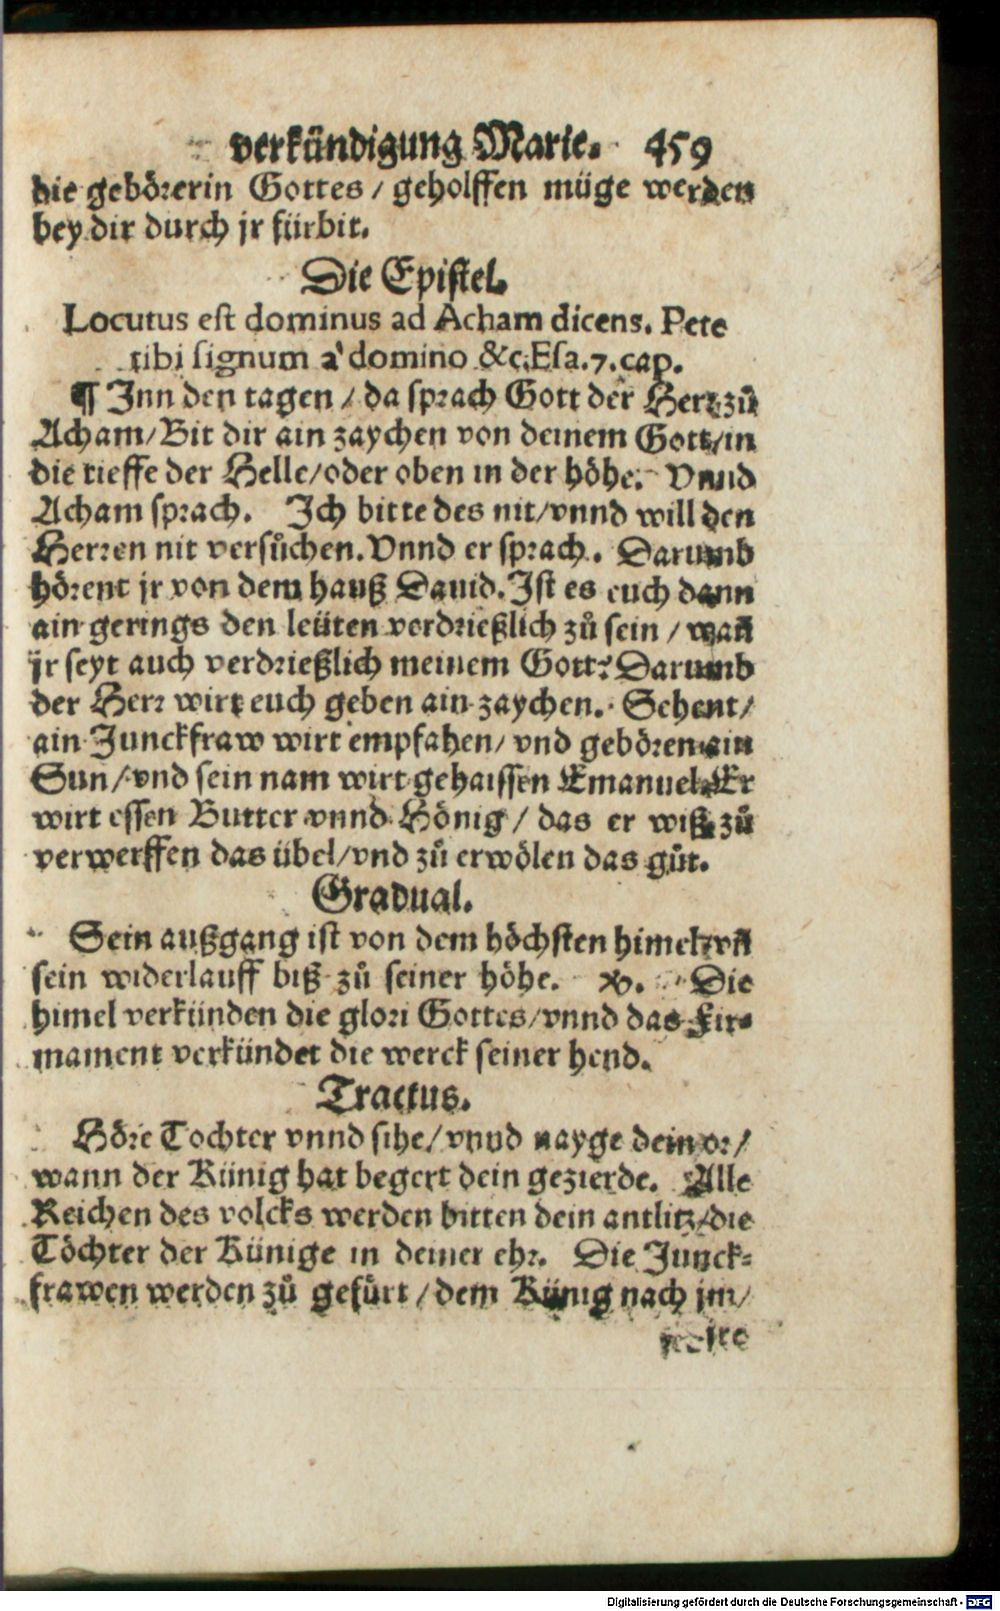 verkündigung Marie. 459
die gebörerin Gottes / geholffen müge werden
bey dir durch jr fürbit.
Die Epistel.
Locutus est dominus ad Acham dicens. Pete
tibi signum à domino &c. Esa. 7. cap.
¶ Inn den tagen / da sprach Gott der Herr zů
Acham / Bit dir ain zaychen von deinem Gott / in
die tieffe der Helle / oder oben in der höhe. Vnnd
Acham sprach. Ich bitte des nit / vnnd will den
Herren nit versůchen. Vnnd er sprach. Darumb
hörent jr von dem hauß Dauid. Ist es euch dann
ain gerings den leüten verdrießlich zů sein / wañ
jr seyt auch verdrießlich meinem Gott? Darumb
der Herr wirt euch geben ain zaychen. Sehent /
ain Junckfraw wirt empfahen / vnd gebören ain
Sun / vnd sein nam wirt gehaissen Emanuel. Er
wirt essen Butter vnnd Hönig / das er wiß zů
verwerffen das übel / vnd zů erwölen das gůt.
Gradual.
Sein außgang ist von dem höchsten himel / vñ
sein widerlauff biß zů seiner höhe. ℣. Die
himel verkünden die glori Gottes / vnnd das Fir-
mament verkündet die werck seiner hend.
Tractus.
Höre Tochter vnnd sihe / vnnd nayge dein or /
wann der Künig hat begert dein gezierde. Alle
Reichen des volcks werden bitten dein antlitz / die
Töchter der Künige in deiner ehr. Die Junck-
frawen werden zů gefůrt / dem Künig nach jm /
Digitalisierung gefördert durch die Deutsche Forschungsgemeinschaft - DFG